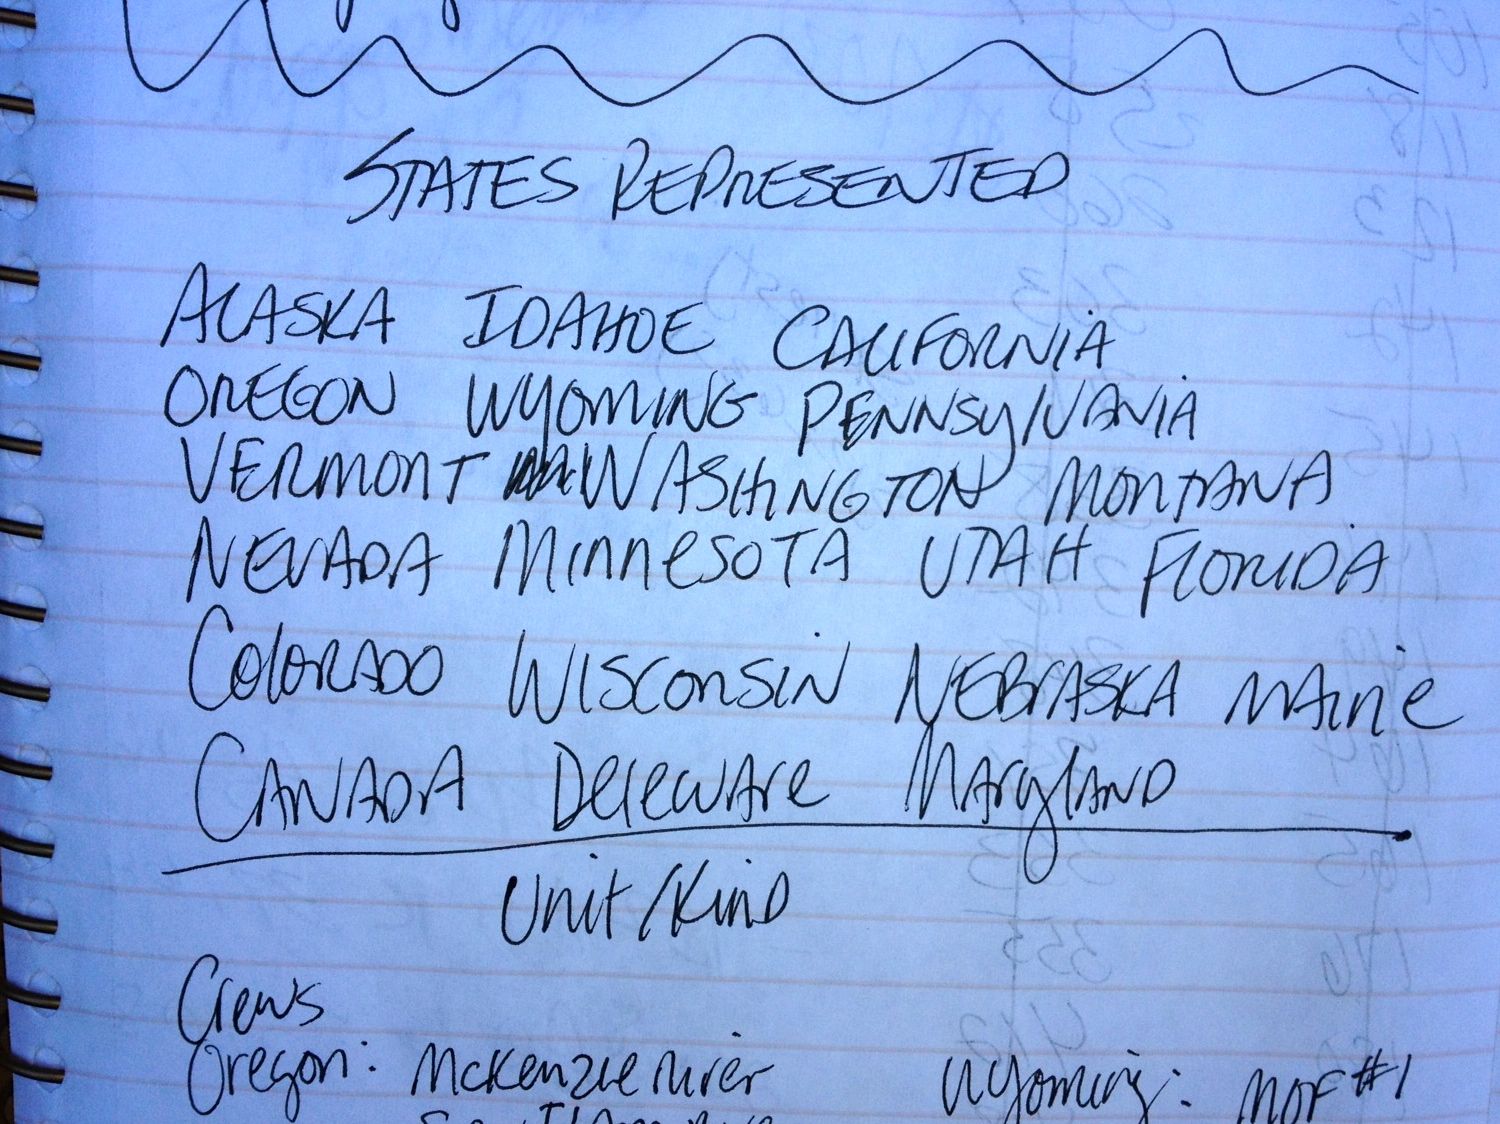 STATES REPRESENTED
ALASKA IDAHOE CALIFORNIA
OREGON WYOMING PENNSYLVANIA
VERMONT WASHINGTON MONTANA
NEVADA MINNESOTA UTAH FLORIDA
COLORADO WISCONSIN NEBRASKA MAINE
CANADA DELEWARE MARYLAND
Unit/Kind
Crews
Oregon: McKenzie River Wyoming: MOF #1